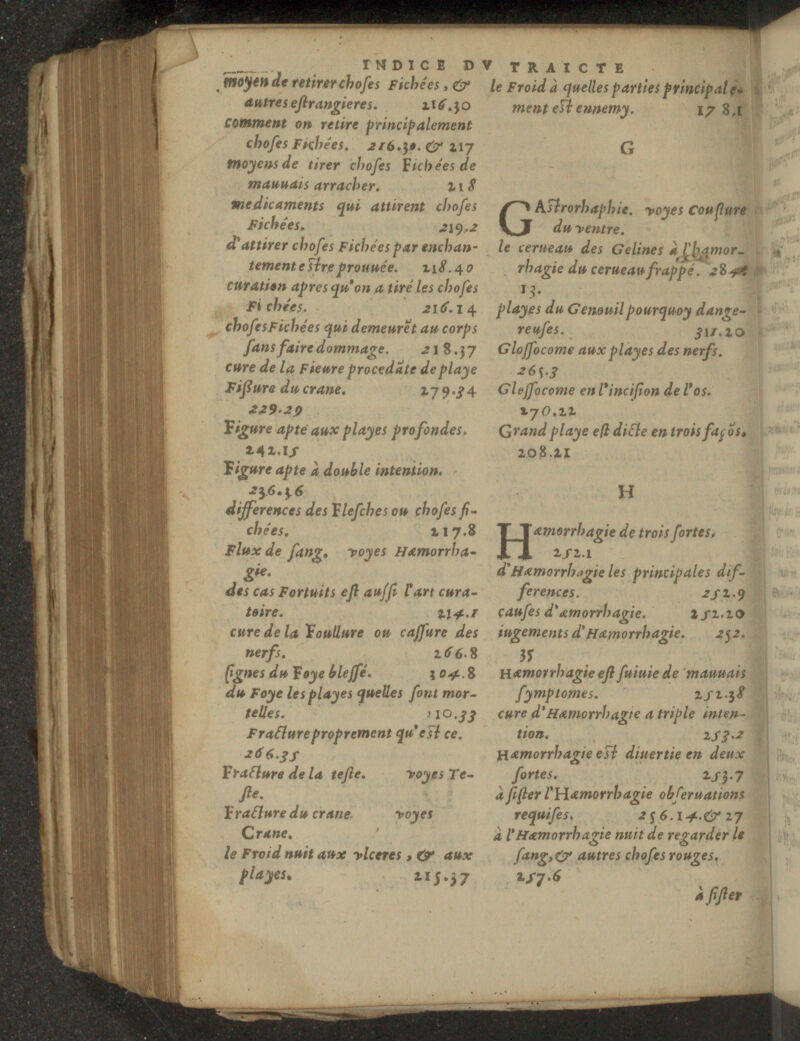 INDICE DV TRAICTE
moyen de retirer choses Fichées, &
autres estrangieres. 216.30
comment on retire principalement
choses Fichées. 216.30. & 217
moyens de tirer choses Fichées de
mauuais arracher. 218
medicaments qui attirent choses
Fichées. 219.2
d'attirer choses Fichées par enchan-
tement estre prouuée. 218.40
curation apres qu'on a tiré les choses
Fichées. 216.14
choses Fichées qui demeurēt au corps
sans faire dommage. 218.37
cure de la Fieure procedāte de playe
Fissure du crane. 279.34
229.29
Figure apte aux playes profondes.
242.15
Figure apte à double intention.
236.36
differences des Flesches ou choses fi-
chées. 217.8
Flux de sang. voyes Hæmorrha-
gie.
des cas Fortuits est aussi l'art cura-
toire. 214.1
cure de la Foullure ou cassure des
nerfs. 266.8
signes du Foye blessé. 304.8
du Foye les playes quelles sont mor-
telles. 310.33
Fracture proprement qu'est ce.
266.35
Fracture de la teste. voyes Te-
ste.
Fracture du crane. voyes
Crane.
le Froid nuit aux vlceres, & aux
playes. 215.37
le Froid à quelles parties principale-
ment est ennemy. 178,1
G
GAstrorhaphie. voyes Cousture
du ventre.
le cerueau des Gelines à l'hæmor-
rhagie du cerueau frappé. 284
13.
playes du Genouil pourquoy dange-
reuses. 311.20
Glossocome aux playes des nerfs.
265.3
Glossocome en l'incision de l'os.
270.22
Grand playe est dicte en trois façōs.
208.21
H
Hæmorrhagie de trois sortes.
252.1
d'Hæmorrhagie les principales dif-
ferences. 252.9
causes d'æmorrhagie. 252.20
iugements d'Hæmorrhagie. 252.
35
Hæmorrhagie est suiuie de mauuais
symptomes. 252.38
cure d'Hæmorrhagie a triple inten-
tion. 253.2
Hæmorrhagie est diuertie en deux
sortes. 253.7
à sister l'Hæmorrhagie obseruations
requises. 256.14.& 27
à l'Hæmorrhagie nuit de regarder le
sang, & autres choses rouges.
257.6
à sister